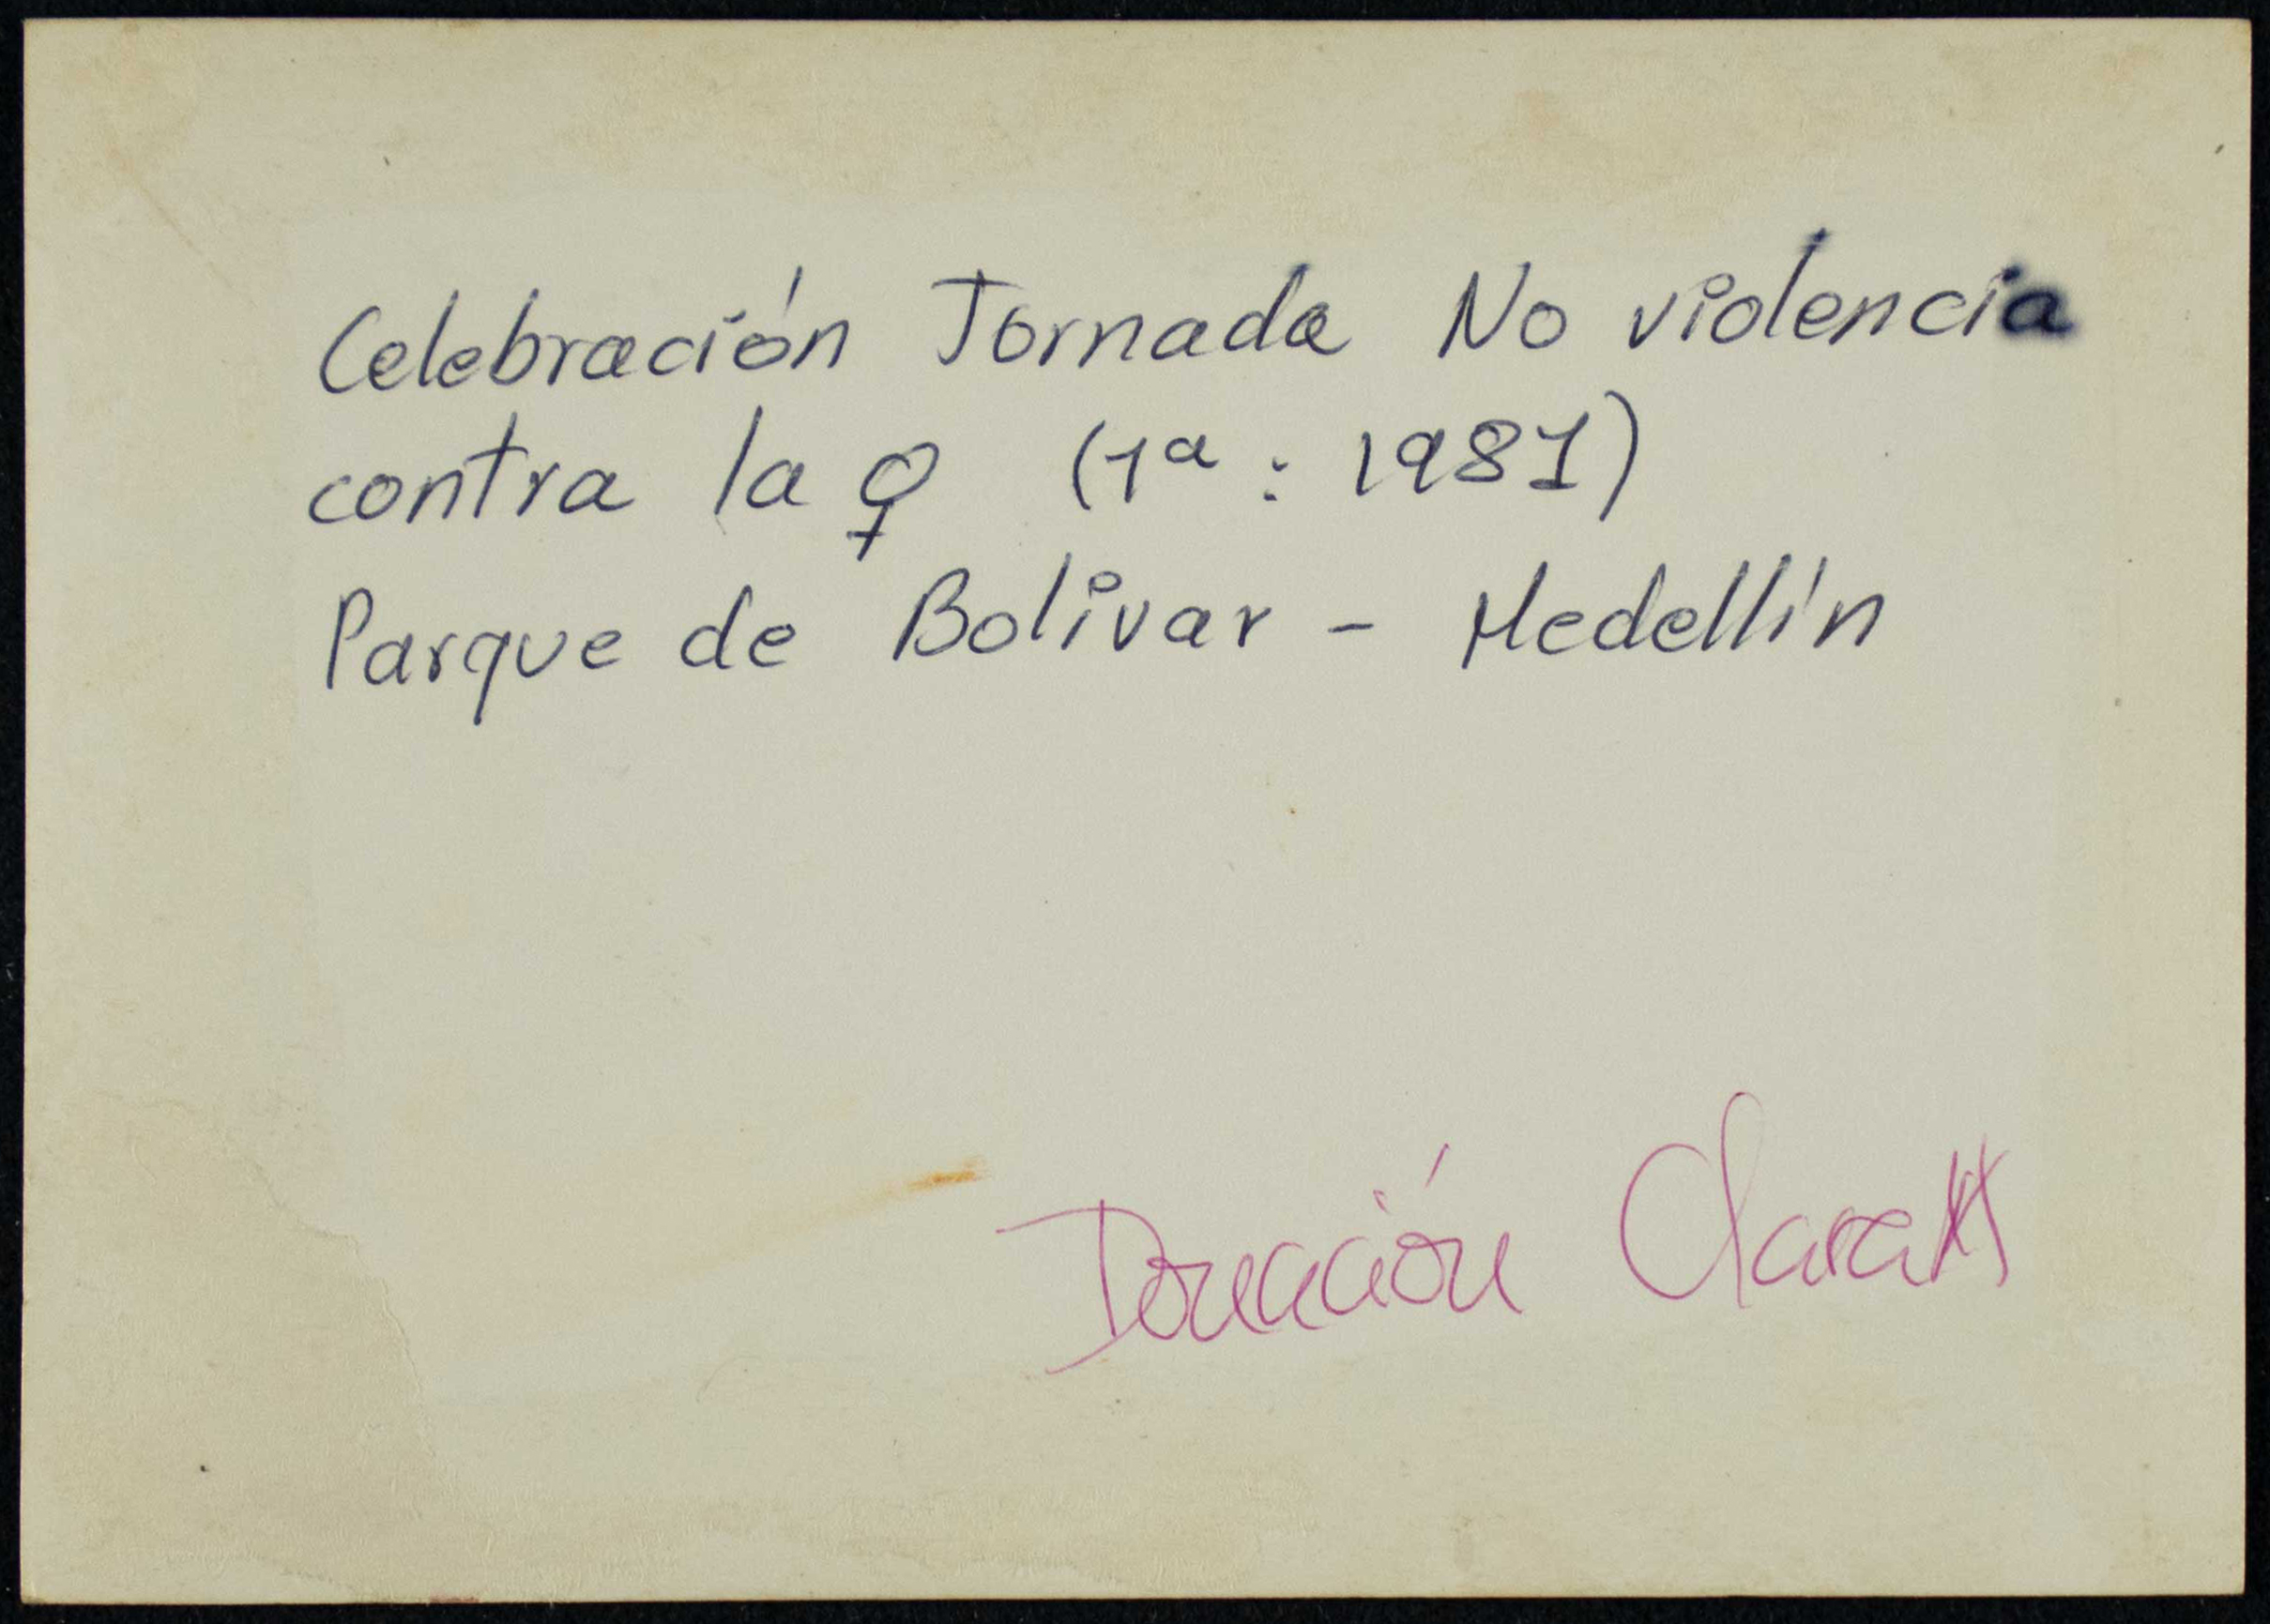 Celebración Jornada No violencia
contra la ♀ (1ª : 1981)
Parque de Bolívar - Medellín
Donación Clara M